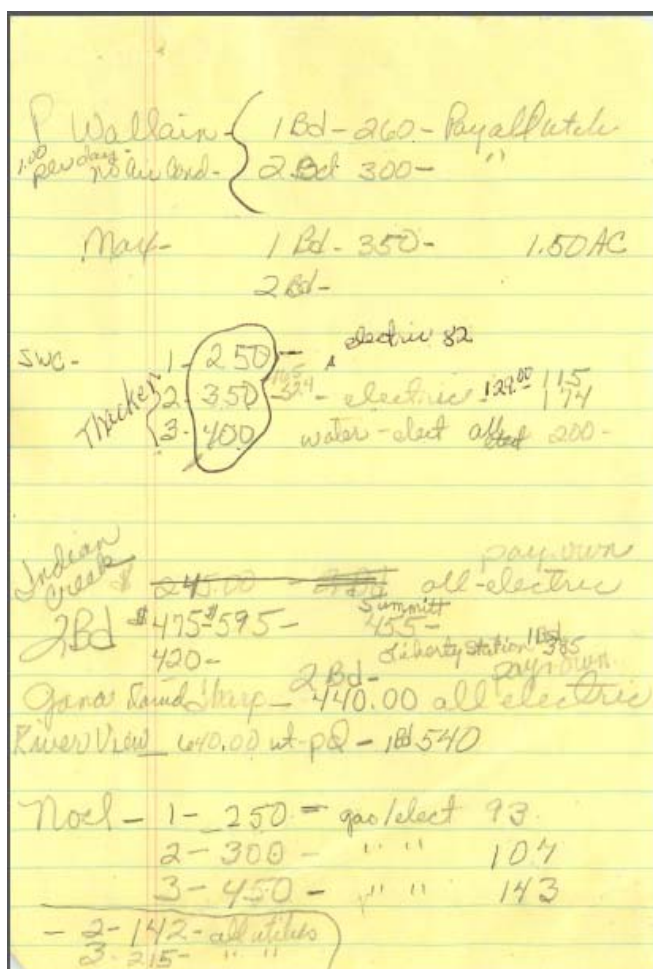 P Wallain - 1 Bd - 260 - Pay all utils
1.00 per day - no air cond - 2 Bd 300 - "
May - 1 Bd - 350 - 1.50 AC
2 Bd -
SWC - 1 - 250 - electric 82
Thacker 2 - 350 - 324 - electric 129.00 115
174
3 - 400 water - elect all 200 -
Indian Creek $ 245.00 - all-electric pay own
2Bd $475 - $595 - Summitt 455 -
420 - Liberty Station 1Bd 385
2 Bd - pay own
David Sharp - 440.00 all electric
River View 640.00 wt-pd - 1Bd 540
Noel - 1 - 250 = gas/elect 93
2 - 300 - " " 107
3 - 450 - " " 143
- 2 - 142 - all utilies
3 - 215 - " "